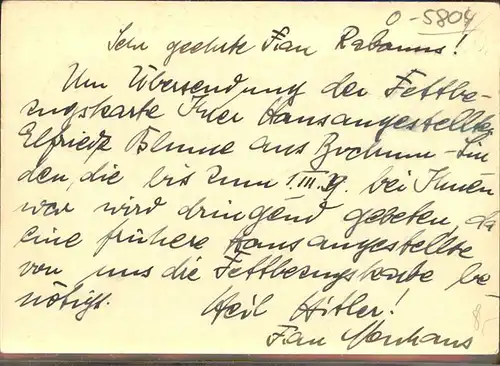 O-5804
Sehr geehrte Frau Rabanus!
Um Übersendung der Fettbe-
zugskarte Ihrer Hausangestellten
Elfriede Blume aus Bochum-Lin
den, die bis zum 1.III. bei Ihnen
war wird dringend gebeten, da
eine frühere Hausangestellte
von uns die Fettbezugskarte be
nötigt.
Heil Hitler!
Frau
8,-